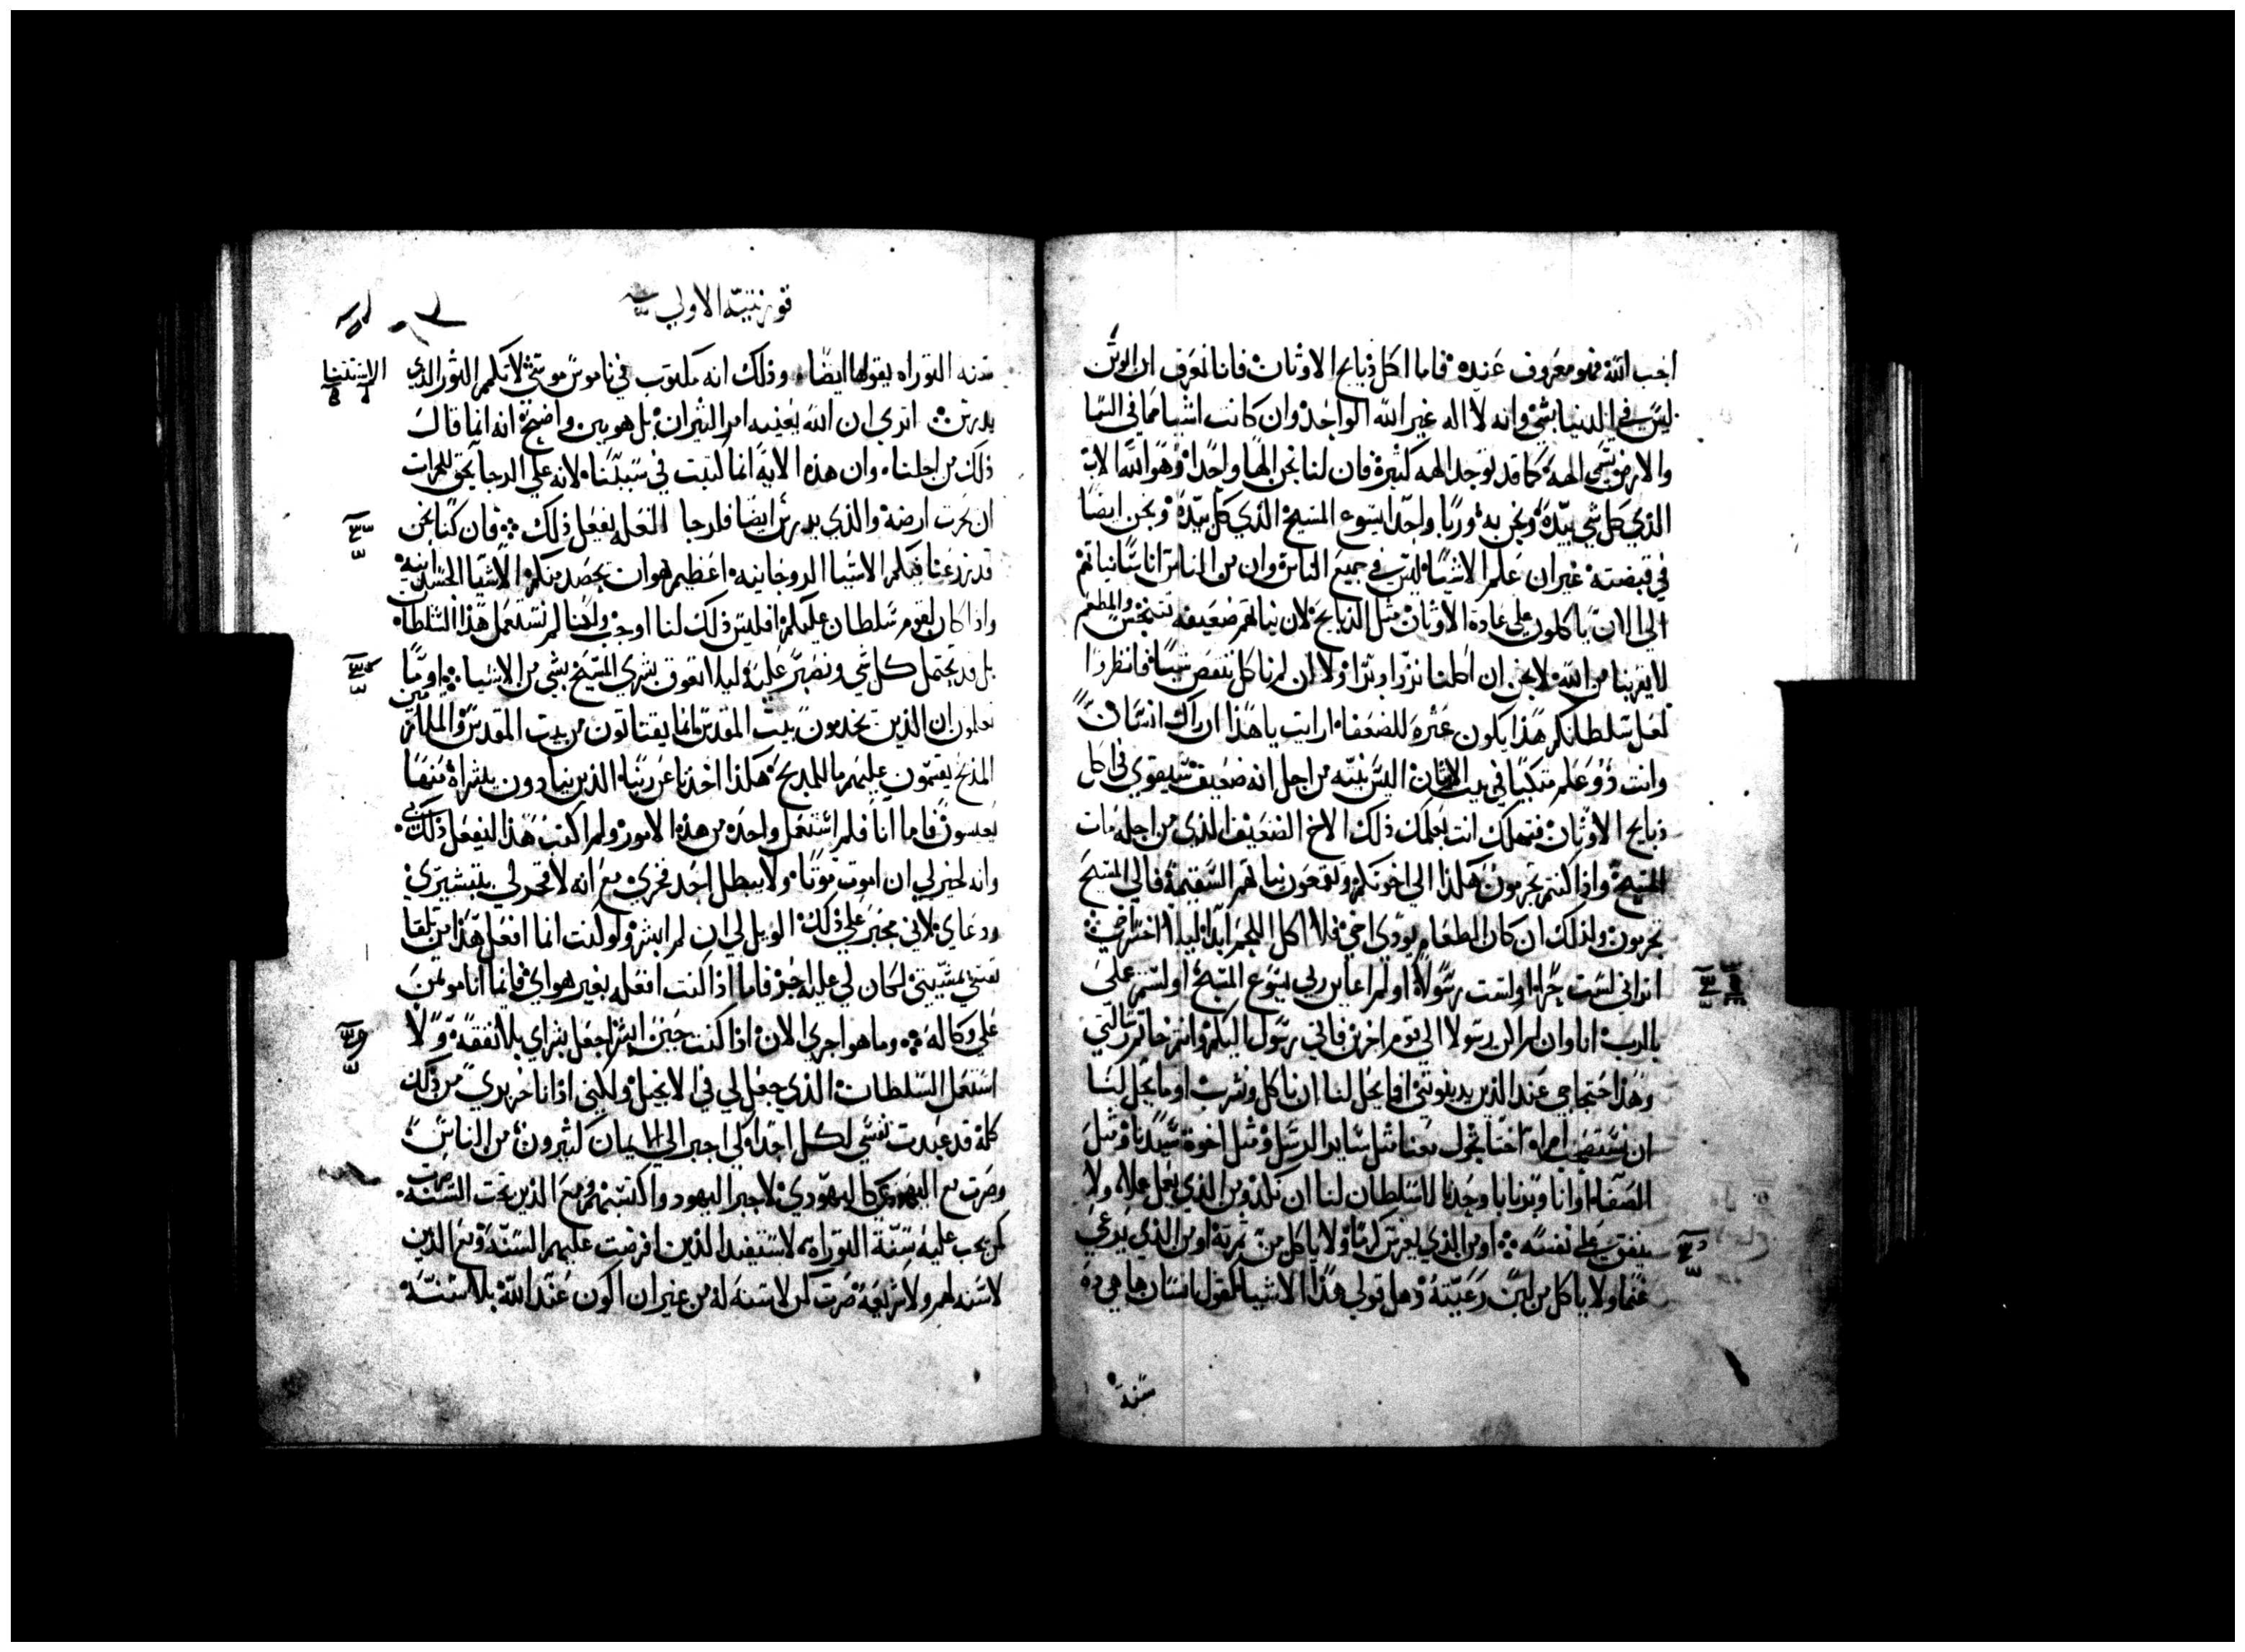 احب الله فهو معروف عنده فاما اكل ذبايح الاوثان فانا نعرف ان الوثن
ليس في الدنيا بشي وانه لا اله غير الله الواحد وان كانت اشيا مما في السما
والارض تسمي الهة كما قد توجد الهه كثيرة فان لنا نحن الها واحدا وهو الله الاب
الذي كل شي بيده ونحن به وربا واحدا ايسوع المسيح الذي كل بيده ونحن ايضا
في قبضته غير ان علم الاشيا ليس في جميع الناس وان من الناس اناسا نياتهم
الي الان ياكلون علي عادة الاوثان مثل الذبايح لان نياتهم ضعيفه تتنجس والمطعم
لا يقربنا من الله لا نحن ان اكلنا نزداد برا ولا ان لم ناكل ننقص شيا فانظروا
لعل سلطانكم هذا يكون عثرة للضعفا ارايت يا هذا ان راك انسان
وانت ذو علم متكيا في بيت الاوثان اليس نيته من اجل انه ضعيف ستقوي في اكل
ذبايح الاوثان فتهلك انت بعلمك ذلك الاخ الضعيف الذي من اجله مات
المسيح واذا كنتم تجرمون هكذا الي اخوتكم وتقمعون نياتهم السقيمة فالي المسيح
تجرمون ولذلك ان كان الطعام يوذي اخي فلا اكل اللحم ابدا ليلا اخسر اخي
اتراني لست حرا اولست رسولا اولم اعاين ربي يسوع المسيح اولستم علي
بالرب انا وان لم اكن رسولا الي قوم اخرين فاني رسول اليكم وانتم خاتم رسالتي
وهذا احتجاجي عند الذين يدينونني افما يحل لنا ان ناكل ونشرب اوما يحل لنا
ان نستصحب امراه اختا تجول معنا مثل ساير الرسل ومثل اخوة سيدنا ومثل
الصفا او انا وبرنابا وحدنا لا سلطان لنا ان نكد ومن الذي يعمل عملا ولا
ينفق علي نفسه او من الذي يغرس كرما ولا ياكل من ثمرته او من الذي يرعي
غنما ولا ياكل من لبن رعيته وهل قولي هذا الاشيا كقول انسان ها هي ذه
سنة
قورنتية الاولي
سنه التوراه يقولها ايضا وذلك انه مكتوب في ناموس موسي لا تكم الثور الذي
الاستثنا
يدرس اتري ان الله يعنيه امر الثيران بل هو بين واضح انه انما قال
ذلك من اجلنا وان هذه الاية انما كتبت في سببنا لانه علي الرجا يحق للحراث
ان يحرث ارضه والذي يدرس ايضا فلرجا الغله يفعل ذلك فان كنا نحن
قد زرعنا فيكم الاشيا الروحانيه اعظيم هو ان نحصد منكم الاشيا الجسدانيه
واذا كان لقوم سلطان عليكم افليس ذلك لنا اوجب ولكنا لم نستعمل هذا السلطان
بل قد نحتمل كل شي ونصبر عليه ليلا نعوق بشري المسيح بشي من الاشيا اوما
تعلمون ان الذين يخدمون بيت المقدس انما يقتاتون من بيت المقدس والملازمين
المذبح يقسمون عليهم ما للمذبح هكذا اخذنا عن ربنا الذين ينادون ببشراه منها
يعيشون فاما انا فلم استعمل واحده من هذه الامور ولم اكتب هذا ليفعل ذلك بي
وانه لخير لي ان اموت موتا ولا يبطل احد فخري مع انه لا فخر لي بتبشيري
ودعاي لاني مجبر علي ذلك الويل لي ان لم ابشر ولو كنت انما افعل هذا من تلقا
نفسي بمشيتي لكان لي عليه اجر فاما اذا كنت افعله بغير هواي فانما انا موتمن
علي وكاله وما هو اجري الان اذا كنت حين ابشر اجعل بشراي بلا نفقة ولا
استعمل السلطان الذي جعل لي في الانجيل ولكني اذ انا حر بري من ذلك
كله قد عبدت نفسي لكل احد كي اجر الي الايمان كثيرون من الناس
وصرت مع اليهود كاليهودي لاجر اليهود واكتسبهم ومع الذين تحت السنه صرت
كمن يجب عليه سنة التوراه لاستفيد الذين افرضت عليهم السنة ومع الذين
لا سنه لهم ولا شريعة صرت كمن لا سنه له من غير ان اكون عند الله بلا سنة